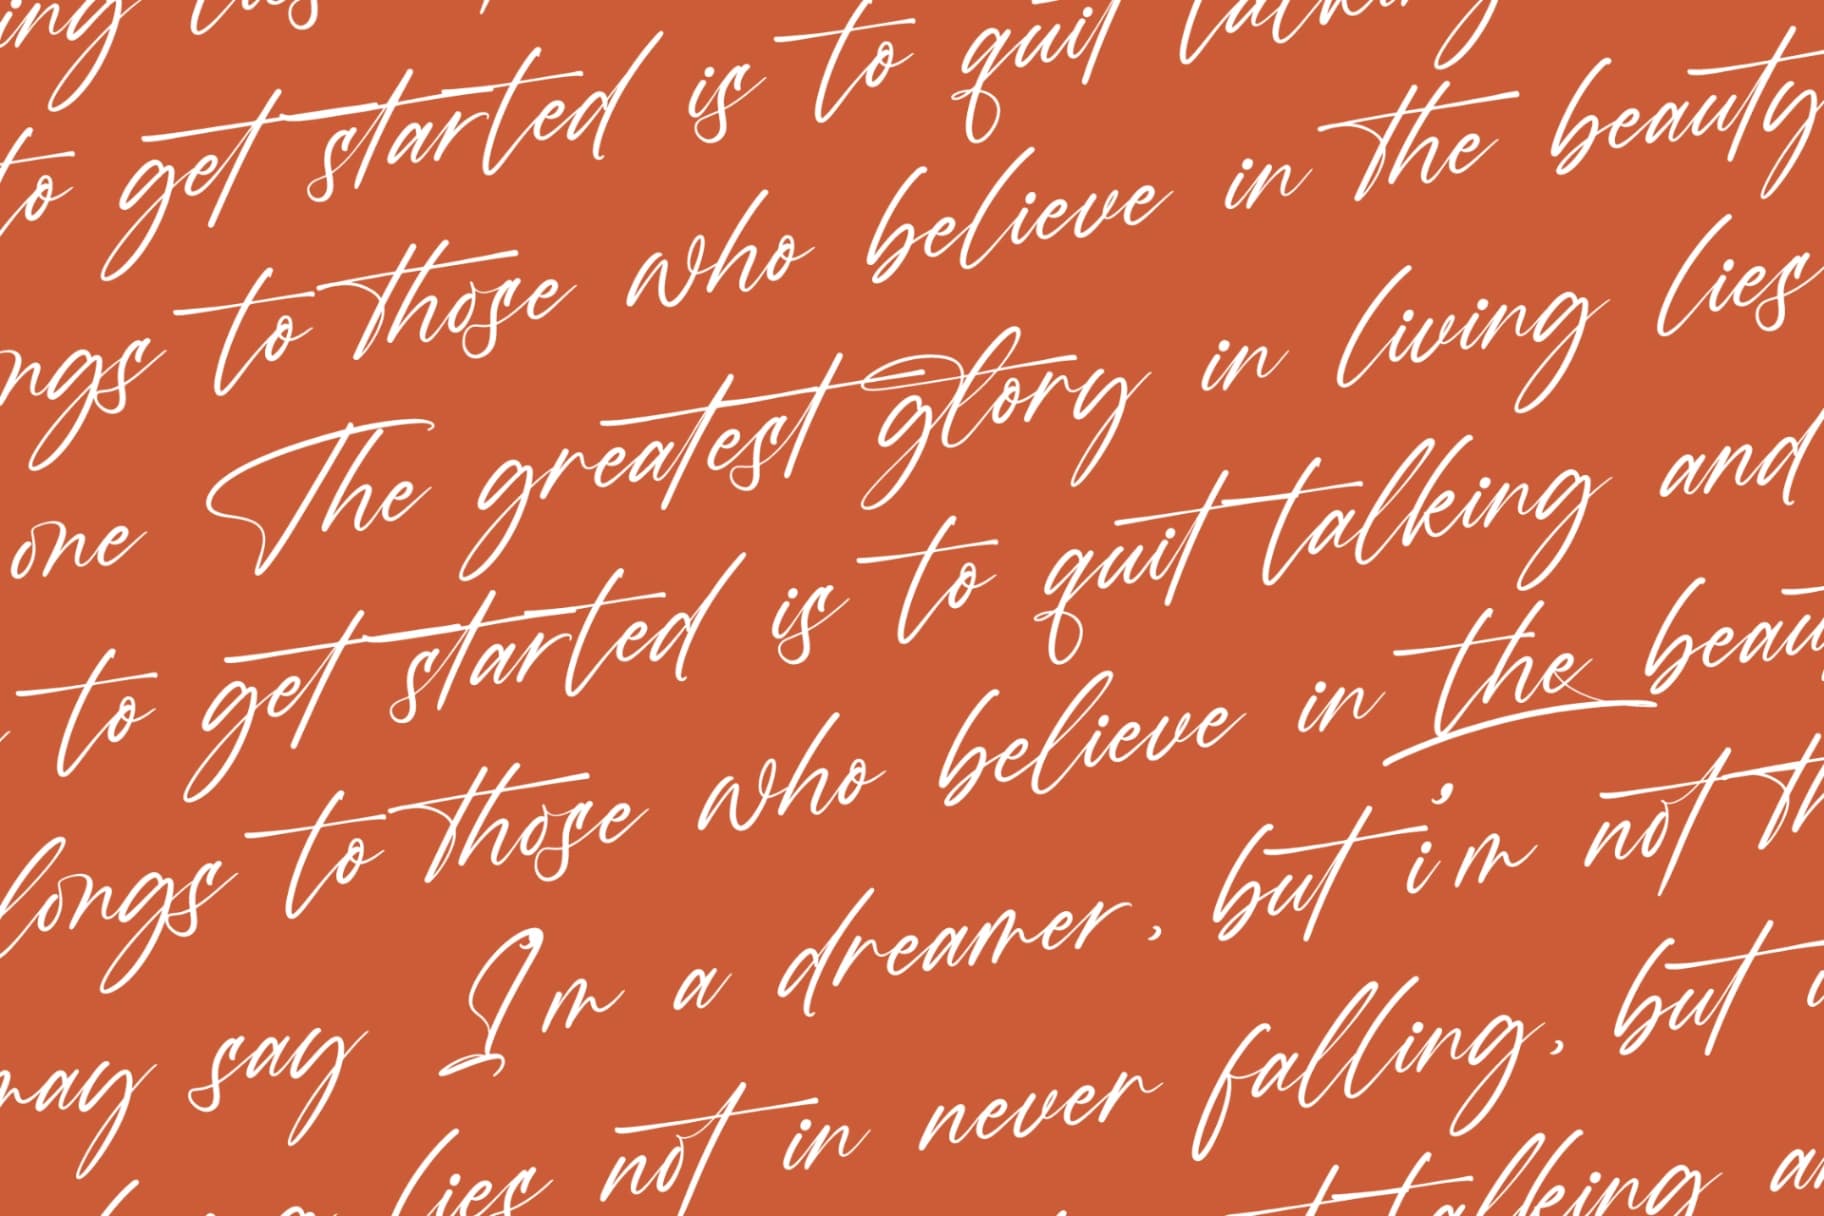 ing lies
to get started is to quit talking
ngs to those who believe in the beauty
one The greatest glory in living lies
to get started is to quit talking and
longs to those who believe in the beau
may say Im a dreamer, but i'm not th
lies not in never falling, but
talking